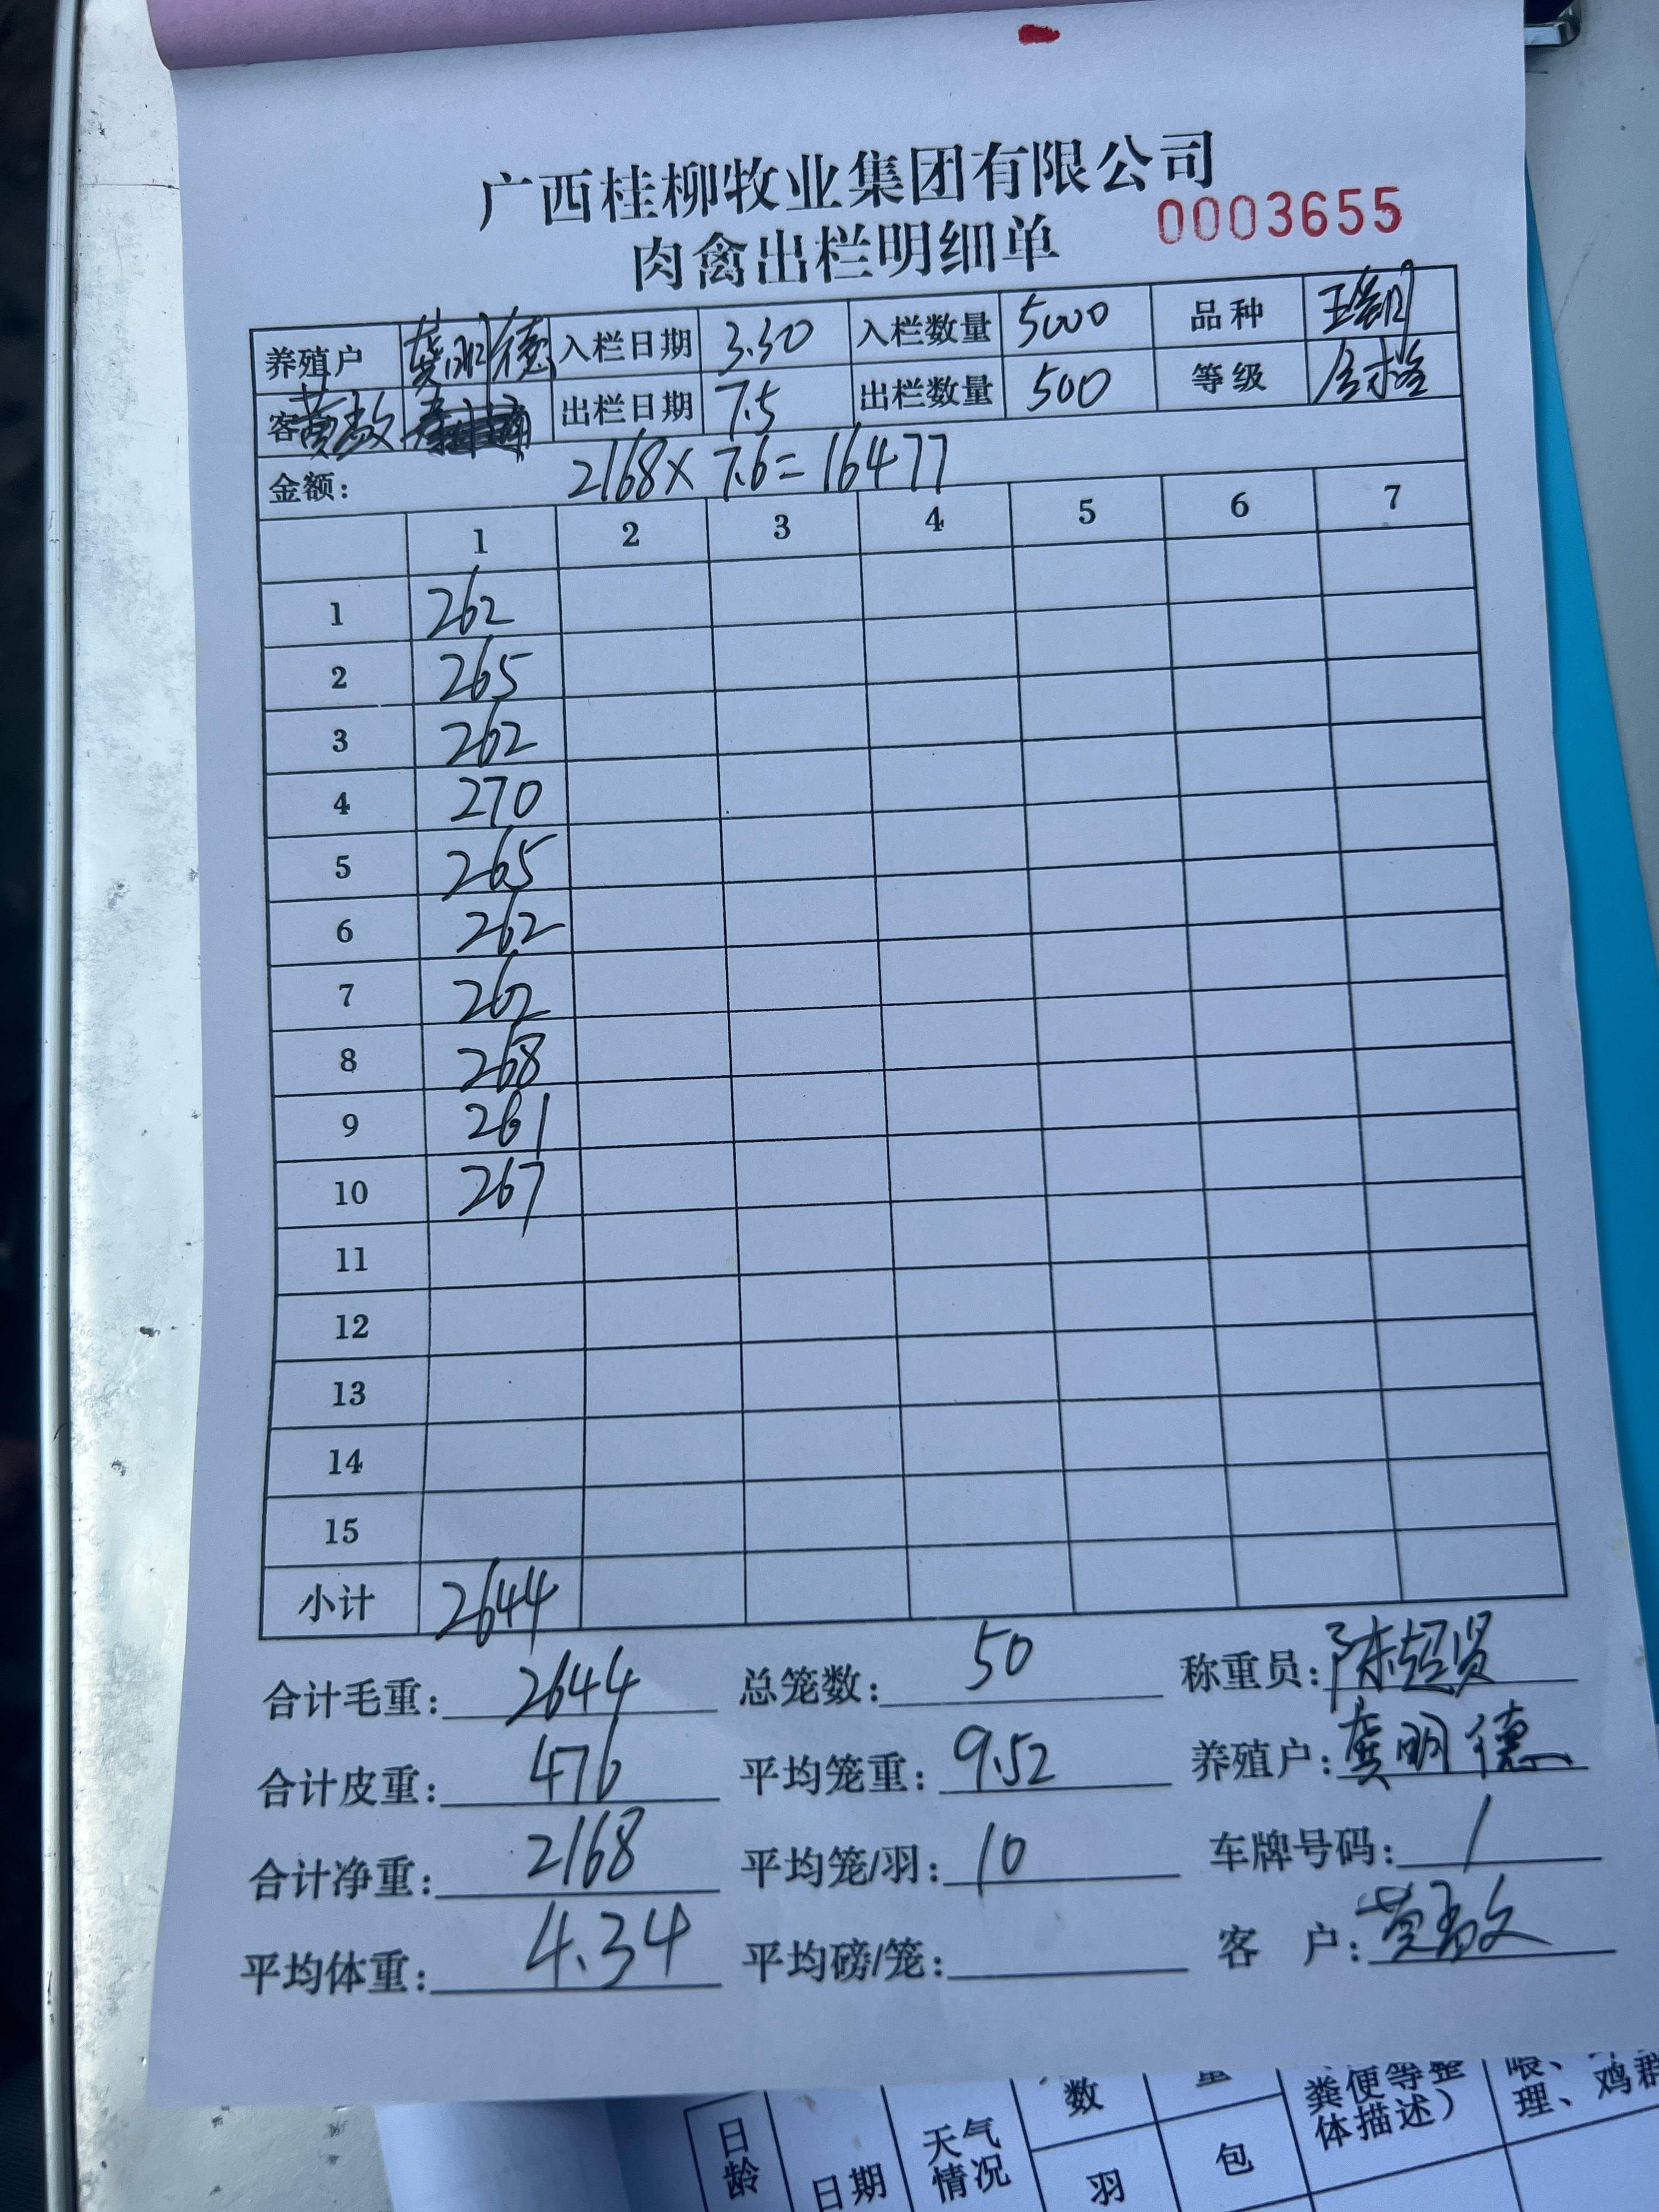 广西桂柳牧业集团有限公司
肉禽出栏明细单 0003655
养殖户 龚明德 入栏日期 3.30 入栏数量 5000 品种
客 黄 出栏日期 7.5 出栏数量 500 等级 合格
金额: 2168×7.6=16477
1 2 3 4 5 6 7
1 262
2 265
3 262
4 270
5 265
6 262
7 262
8 268
9 261
10 267
11
12
13
14
15
小计 2644
合计毛重: 2644 总笼数: 50 称重员: 陈超贤
合计皮重: 476 平均笼重: 9.52 养殖户: 龚明德
合计净重: 2168 平均笼/羽: 10 车牌号码: /
平均体重: 4.34 平均磅/笼: 客 户: 黄
日龄 日期 天气情况 数 羽 量 包 粪便等整体描述） 理、鸡群